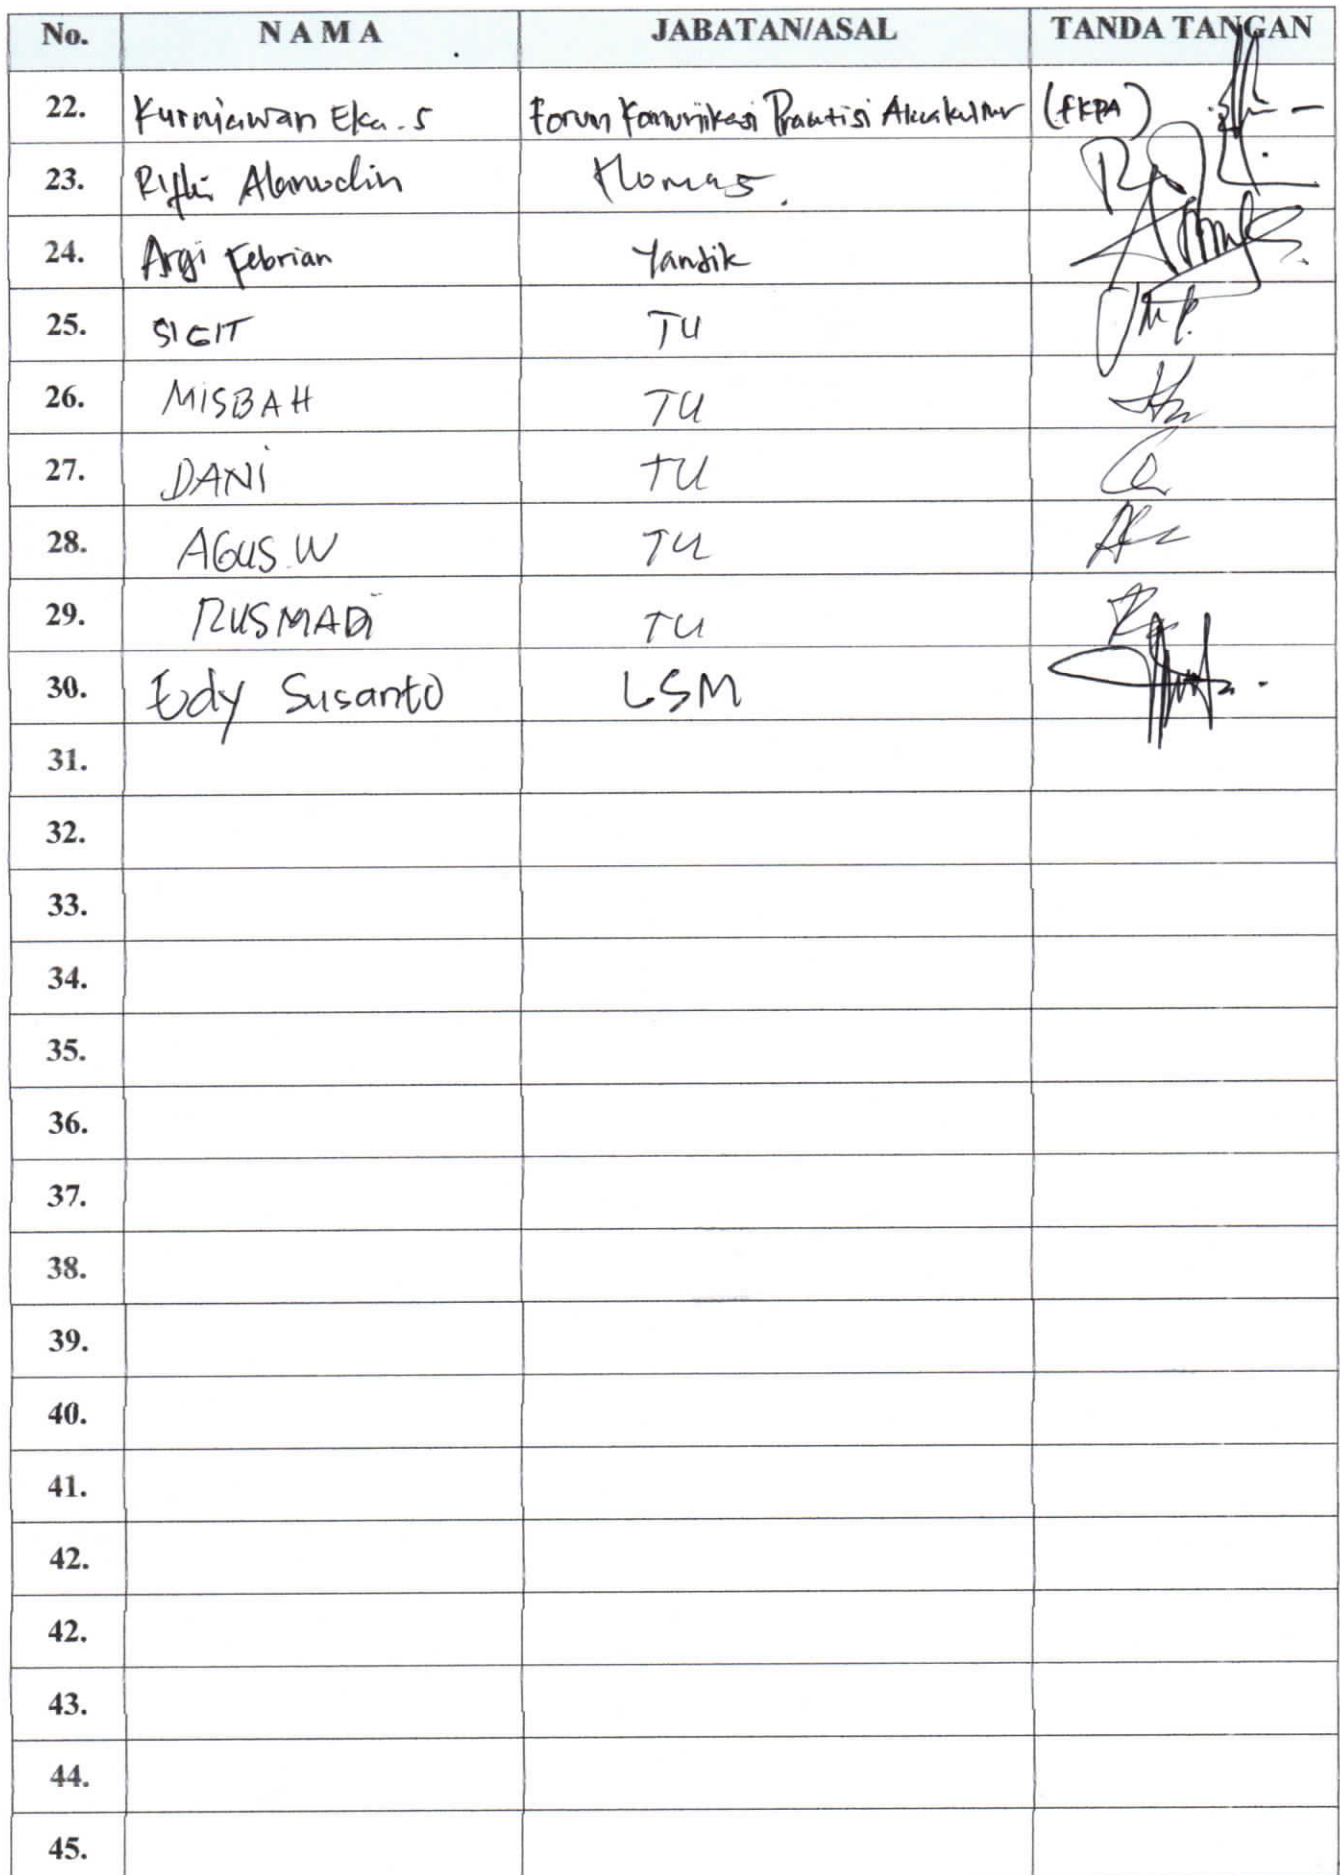 No. N A M A JABATAN/ASAL TANDA TANGAN
22. Kurniawan Eka.S Forum Komunikasi Praktisi Akuakultur (FKPA)
23. Humas.
24. Argi Febrian Yandik
25. SIGIT TU
26. MISBAH TU
27. DANI TU
28. AGUS.W TU
29. RUSMADI TU
30. Edy Susanto LSM
31.
32.
33.
34.
35.
36.
37.
38.
39.
40.
41.
42.
42.
43.
44.
45.